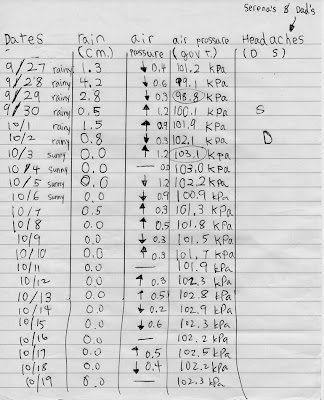 Serena's & Dad's
Dates rain air air pressure Headaches
(cm.) pressure (gov't) (D S)
9/27 rainy 1.3 ↓0.4 101.2 kPa
9/28 rainy 4.2 ↓0.6 99.1 kPa
9/29 rainy 2.8 ↓0.3 98.8 kPa
9/30 rainy 0.5 ↑1.2 100.1 kPa S
10/1 rainy 1.5 ↑0.9 101.9 kPa
10/2 rainy 0.8 ↓0.3 102.1 kPa D
10/3 sunny 0.0 ↑1.2 103.1 kPa
10/4 sunny 0.0 — 103.0 kPa
10/5 sunny 0.0 ↓1.2 102.2 kPa
10/6 sunny 0.0 ↓0.9 100.9 kPa
10/7 0.5 ↑0.3 101.3 kPa
10/8 0.0 ↑0.5 101.8 kPa
10/9 0.0 ↓0.3 101.5 kPa
10/10 0.0 ↑0.3 101.7 kPa
10/11 0.0 — 101.9 kPa
10/12 0.0 ↑0.3 102.3 kPa
10/13 0.0 ↑0.5 102.8 kPa
10/14 0.0 ↓0.2 102.9 kPa
10/15 0.0 ↓0.6 102.3 kPa
10/16 0.0 — 102.2 kPa
10/17 0.0 ↑0.5 102.5 kPa
10/18 0.0 ↓0.4 102.2 kPa
10/19 0.0 — 102.3 kPa